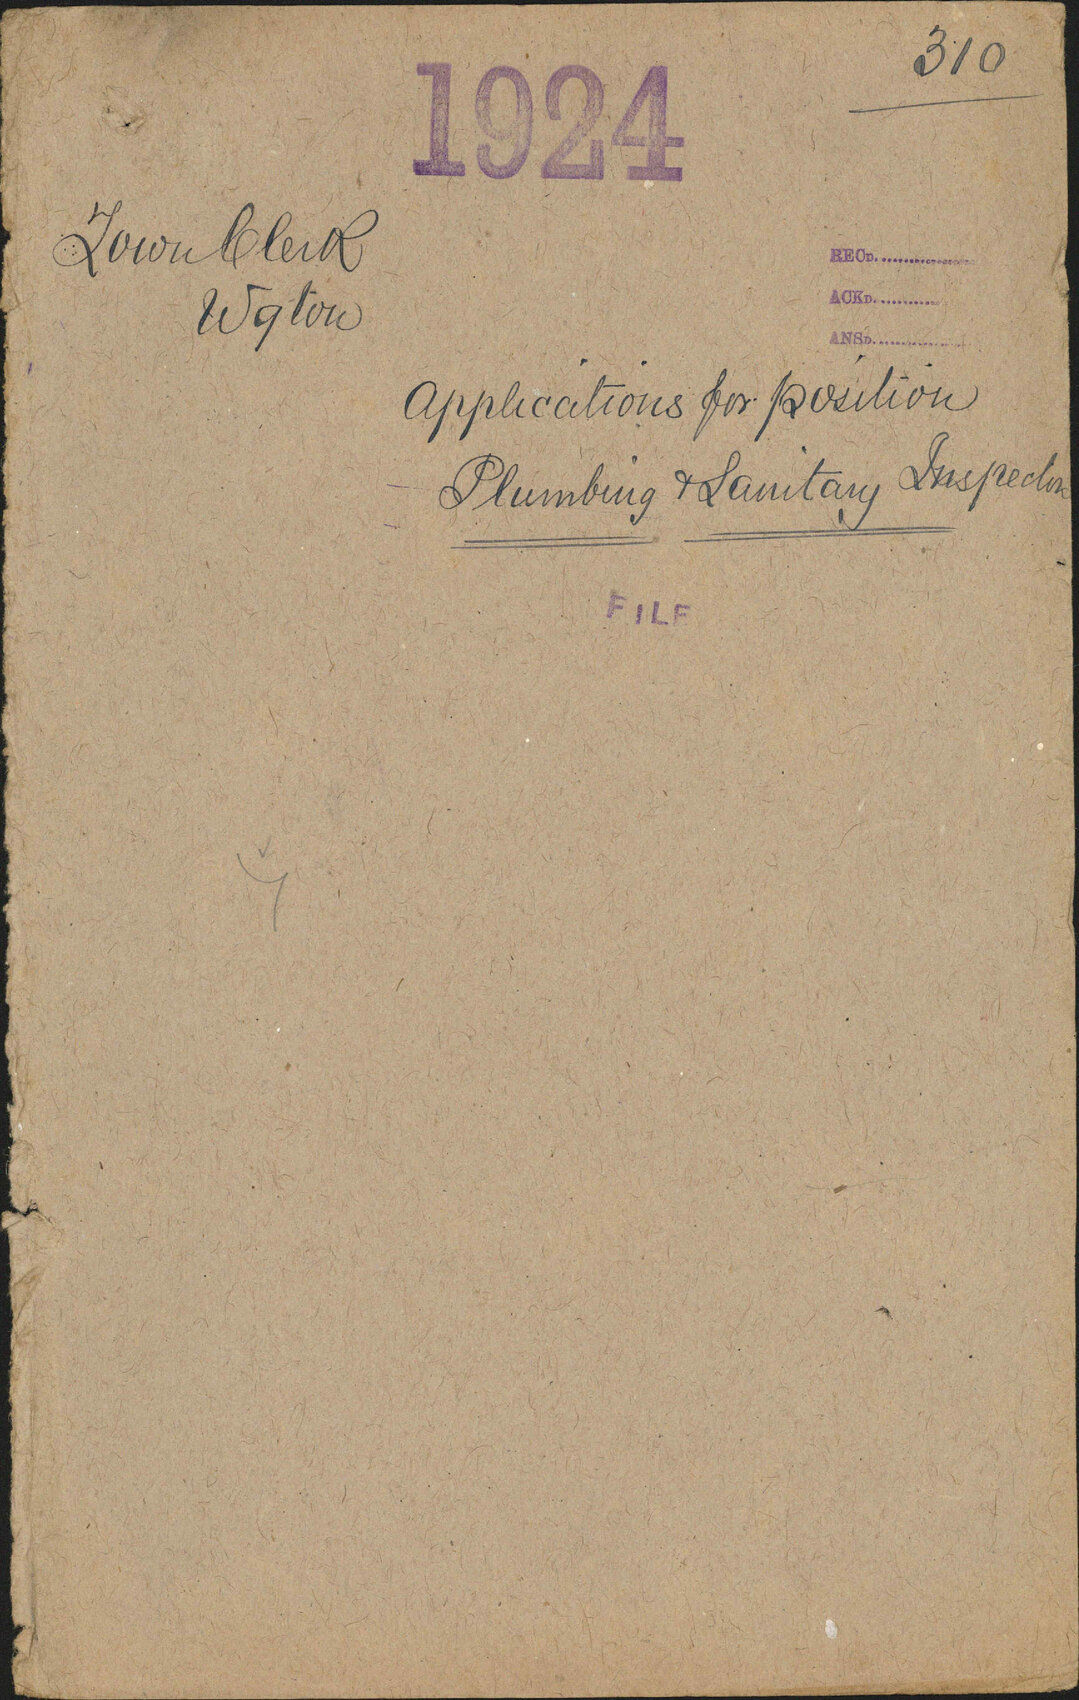 310
1924
Town Clerk
Wgton
RECD....................
ACKD.............
ANSD...................
Applications for position
Plumbing & Sanitary Inspector
FILE